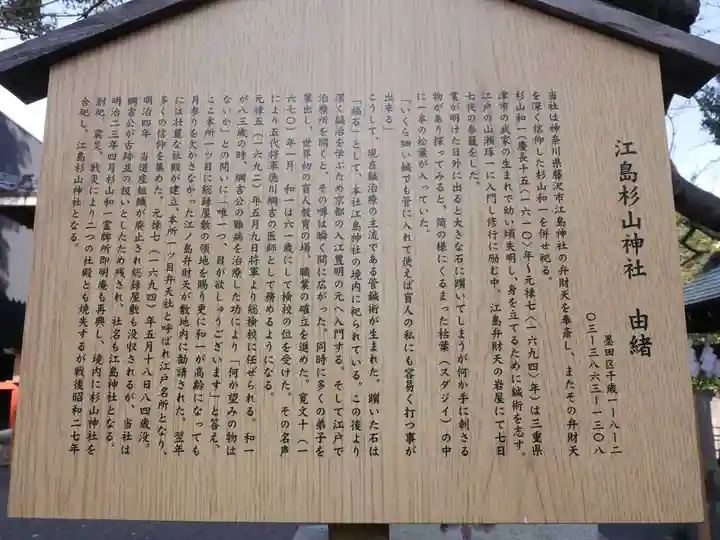 江島杉山神社 由緒
墨田区千歳一-八-二
〇三-三八六三-一三〇八
当社は神奈川県藤沢市江島神社の弁財天を奉斎し、またその弁財天
を深く信仰した杉山和一を併せ祀る。
杉山和一(慶長十五(一六一〇)年~元禄七(一六九四)年)は三重県
津市の武家の生まれで幼い頃失明し、身を立てるために鍼術を志す。
江戸の山瀬琢一に入門し修行に励む中、江島弁財天の岩屋にて七日
七夜の参籠をした。
霊が明けた日外に出ると大きな石に躓いてしまうが何か手に刺さる
物があり探ってみると、筒の様にくるまった枯葉(スダジイ)の中
に一本の松葉が入っていた。
「いくら細い鍼でも管に入れて使えば盲人の私にも容易く打つ事が
出来る」
こうして、現在鍼治療の主流である管鍼術が生まれた。躓いた石は
「福石」として、本社江島神社の境内に祀られている。この後より
深く鍼治を学ぶため京都の入江豊明の元へ入門する。そして江戸で
治療所を開くと、その噂は瞬く間に広がった。同時に多くの弟子を
輩出し、世界初の盲人教育の場、職業の確立を進めた。寛文十(一
六七〇)年一月 和一は六一歳にして検校の位を受けた。その名声
により五代将軍徳川綱吉の医師として務めるようになる。
元禄五(一六九二)年五月九日将軍より総検校に任ぜられる。和一
が八三歳の時、綱吉公の難病を治療した功により「何か望みの物は
ないか」との問いに「唯一つ、目が欲しゅうございます」と答え、
ここ本所一ツ目に総録屋敷の領地を賜り更に和一が高齢になっても
月参りを欠かさなかった江ノ島弁財天が敷地内に勧請された。翌年
には壮麗な社殿が建立、本所一ツ目弁天社と呼ばれ江戸名所となり、
多くの信仰を集めた。元禄七(一六九四)年五月十八日八四歳没。
明治四年 当道座組織が廃止され総録屋敷も没収されるが、当社は
綱吉公が古跡並の扱いとしたため残され、社名も江島神社となる。
明治二三年四月杉山和一霊牌所即明庵も再興し、境内に杉山神社を
創祀。震災、戦災により二つの社殿とも焼失するが戦後昭和二七年
合祀し、江島杉山神社となる。